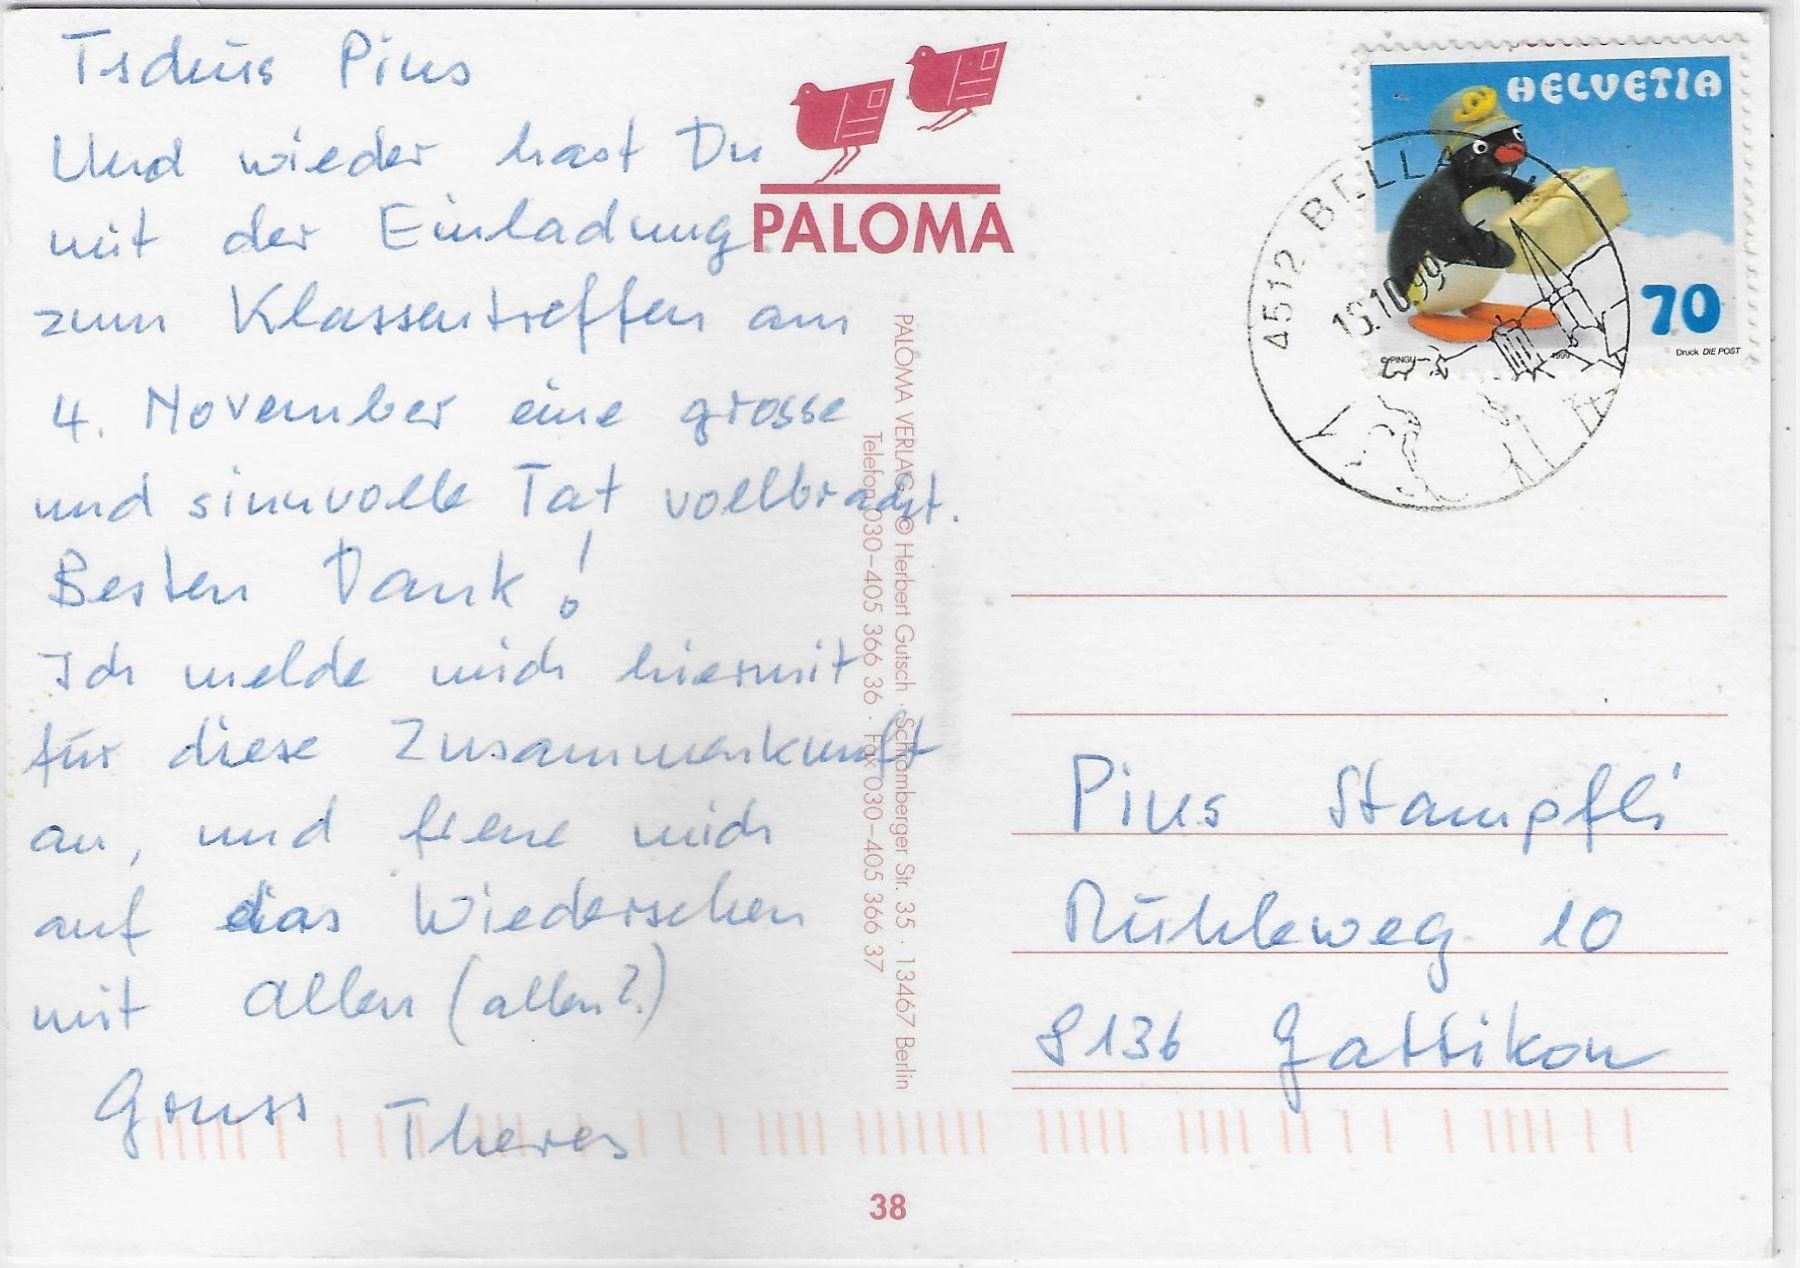 Tschüs Pius
Und wieder hast Du
mit der Einladung
zum Klassentreffen am
4. November eine grosse
und sinnvolle Tat vollbracht.
Besten Dank!
Ich melde mich hiermit
für diese Zusammenkunft
an, und freue mich
auf das Wiedersehen
mit allen (allen?)
Gruss Theres
PALOMA
PALOMA VERLAG © Herbert Gutsch · Schramberger Str. 35 · 13467 Berlin
Telefon 030–405 366 36 · Fax 030–405 366 37
38
HELVETIA
70
© PINGU
1999
Druck DIE POST
4512 BELLA
10.99
Pius Stampfli
Mühleweg 10
8136 Gattikon